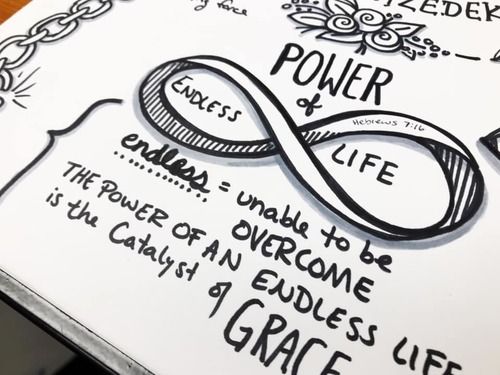 face
POWER
of
Hebrews 7:16
ENDLESS
LIFE
endless = unable to be
OVERCOME
THE POWER OF AN ENDLESS LIFE
is the Catalyst of
GRACE